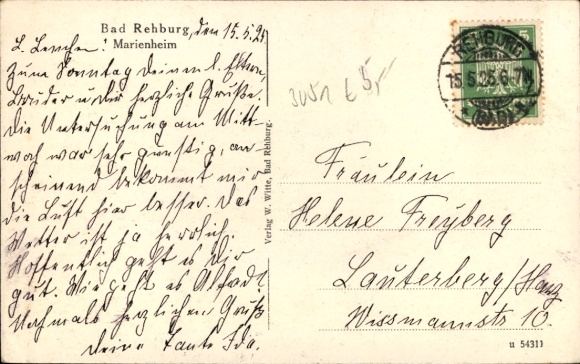 Bad Rehburg, den 15.5.25
Marienheim
L. Lenchen!
Zum Sonntag deinen l. Eltern,
Bruder u. dir herzliche Grüße.
Die Untersuchung am Mitt-
woch war sehr günstig, an-
scheinend bekommt mir
die Luft hier besser. Das
Wetter ist ja herrlich.
Hoffentlich geht es dir
gut. Wie geht es Alfred?
Nochmals herzlichen Gruß
deine Tante Ida.
Verlag W. Witte, Bad Rehburg.
3051 € 5,-
REHBURG
15.5.25.6-7N
(BAD)
5
Fräulein
Helene Freyberg
Lauterberg/Harz
Wissmannstr 10.
u 54311